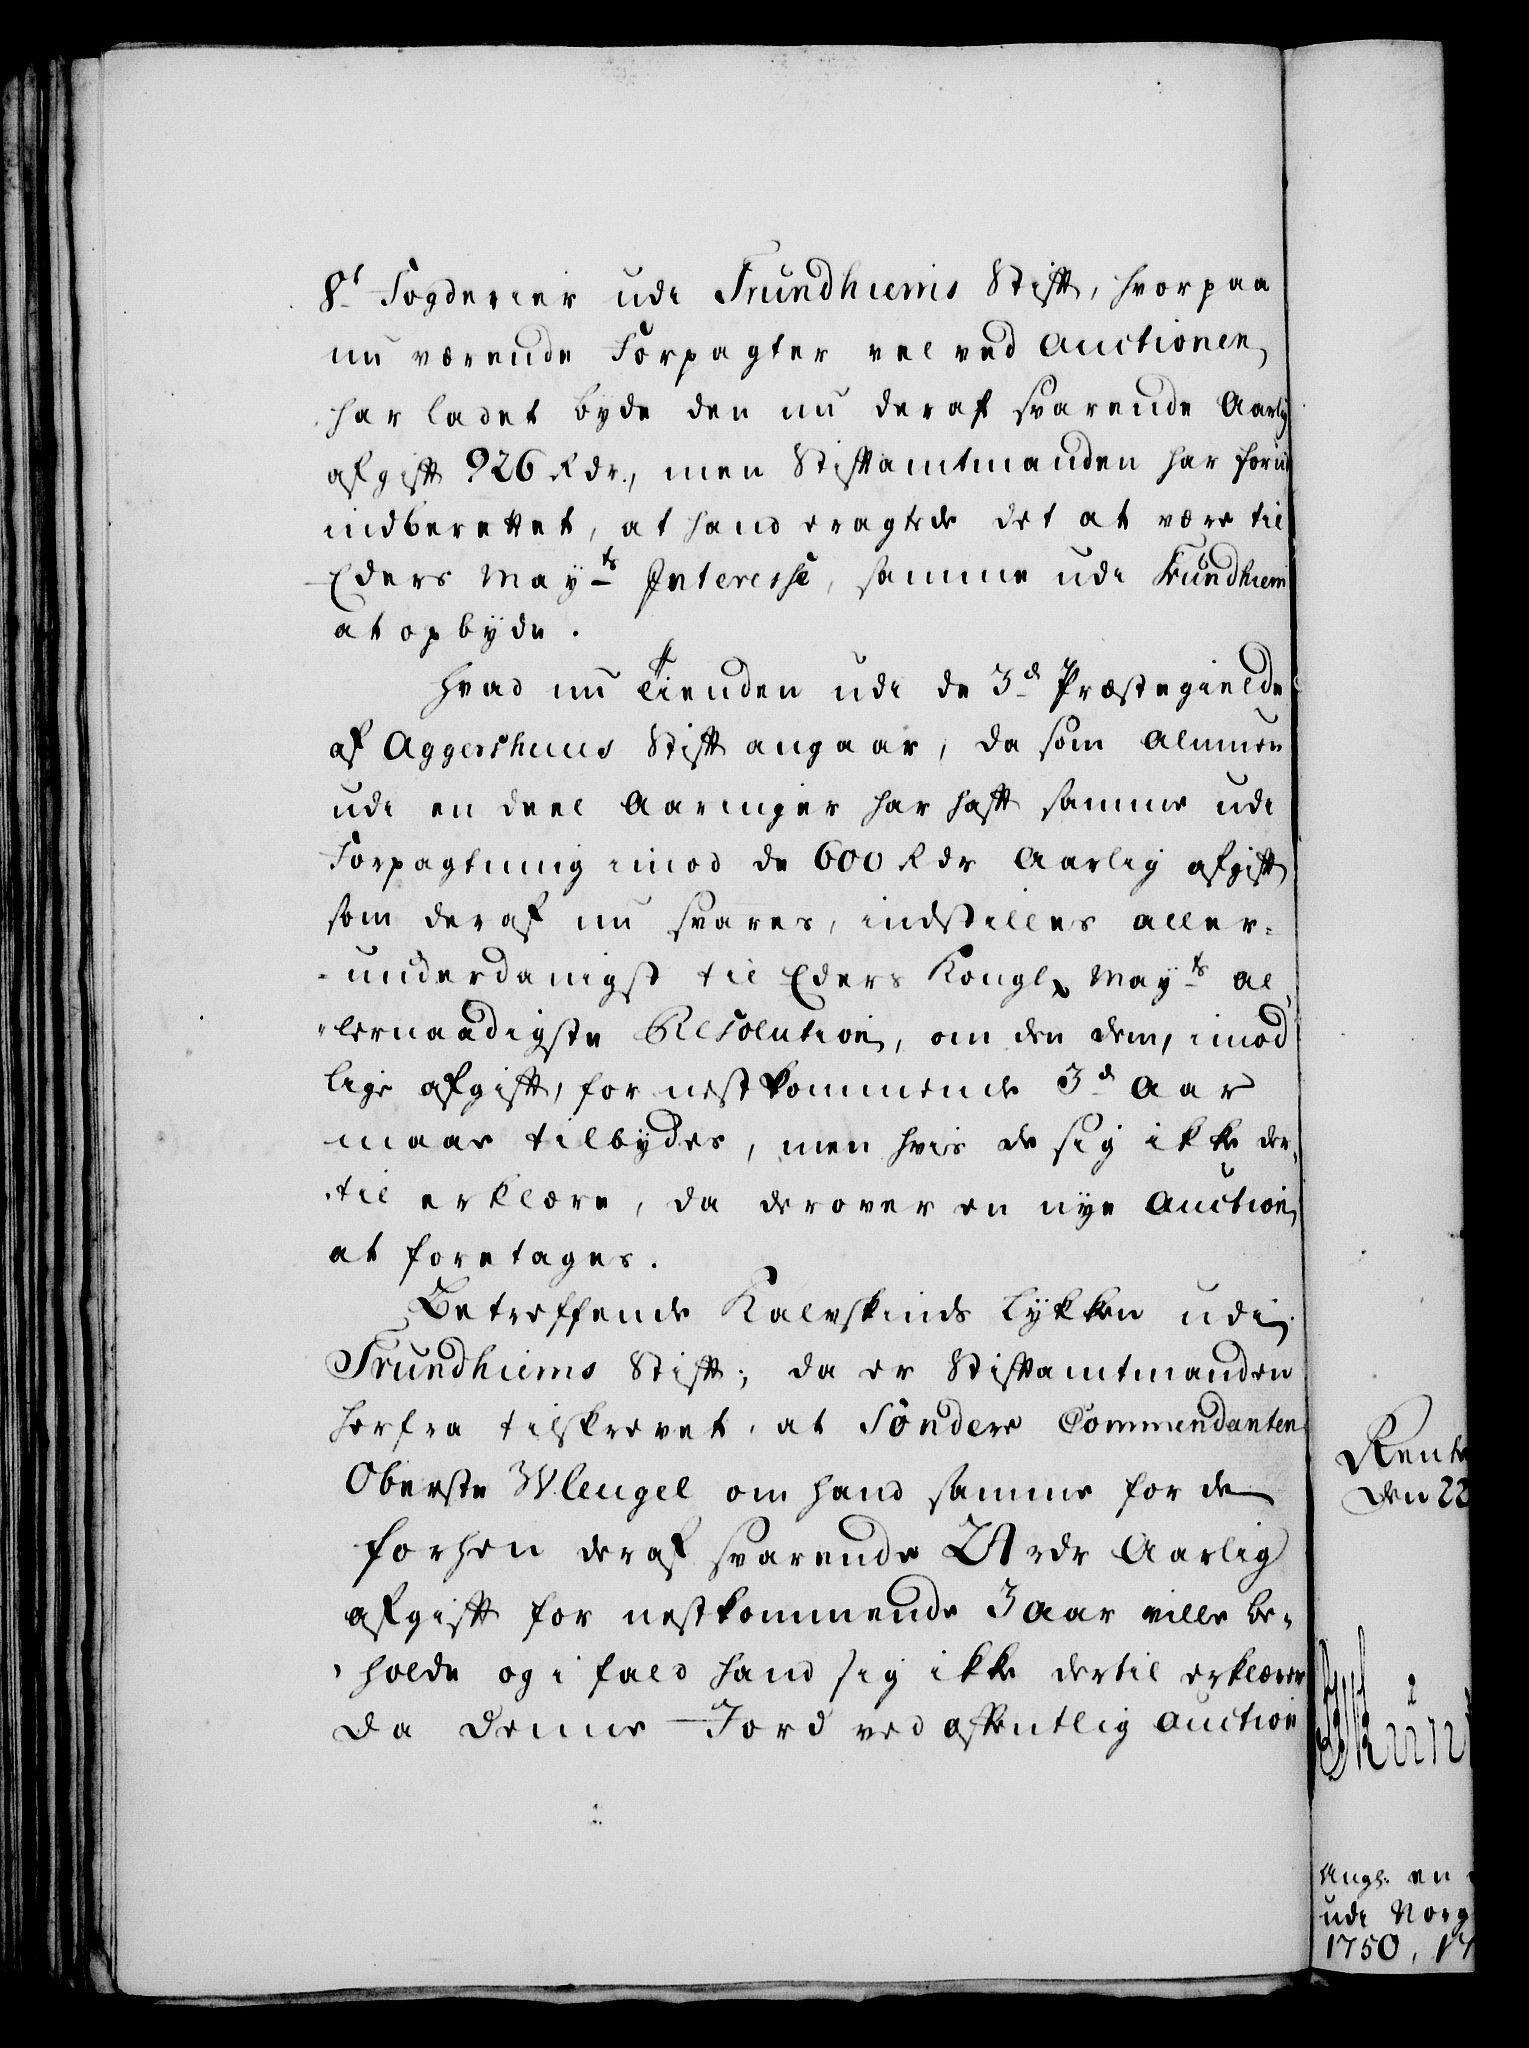 8t Fogderier udi Trundhiems Stift, hvorpaa
nu værende Forpagter vel ved Auctionen
har ladet byde den nu deraf svarende Aarlig
afgift 926 Rdr., men Stiftamtmanden har forud
indberettet, at hand eragtede det at være til
Eders Mayts Interesse, samme udi Trundhiem
at opbyde.
Hvad nu Tienden udi de 3de Præstegielde
af Aggershuus Stift angaar, da som Almuen
udi en deel Aaringer har haft samme udi
Forpagtning imod de 600 Rdr Aarlig afgift
som deraf nu svares, indstilles aller-
-underdanigst til Eders Kongl. Mayts al
-lernaadigste Resolution, om den dem, imod
lige afgift, for nestkommende 3de Aar
maae tilbydes, men hvis de sig ikke der-
-til erklære, da derover en nye Auction
at foretages.
Betreffende Kalvskinds Lykken udi
Trundhiems Stift; da er Stiftamtmanden
herfra tilskrevet, at Søndere Commendanten
Oberste Wlengel om hand samme for de
forhen deraf svarende rdr Aarlig
afgift for nestkommende 3 Aar ville be-
-holde og i fald hand sig ikke dertil erklærer
da denne Jord ved offentlig Auction
Rent
den 22
Angl. en
udi Norg
1750, 17